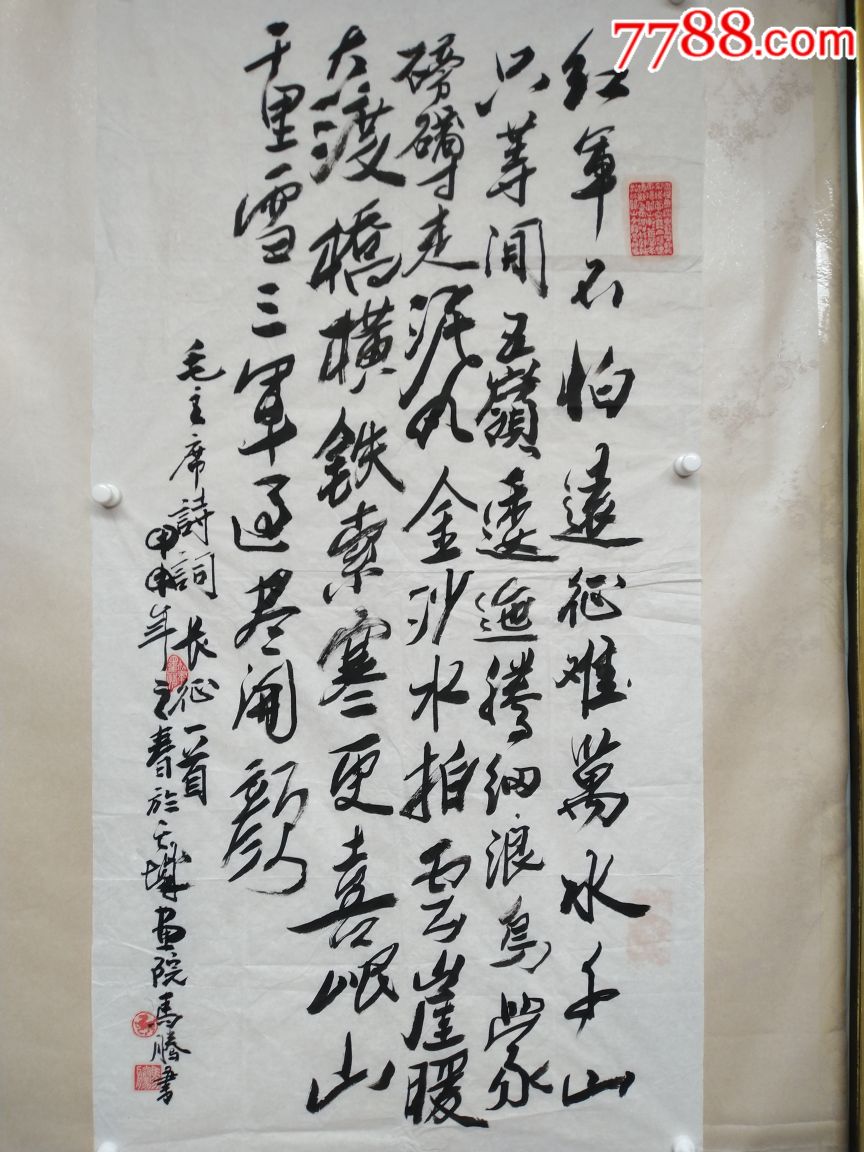 7788.com
红軍不怕遠征难萬水千山
只等闲五嶺逶迤腾细浪烏蒙
磅礴走泥丸金沙水拍雲崖暖
大渡橋横铁索寒更喜岷山
千里雪三軍过尽開颜
毛主席詩詞长征一首
甲申年之春於天城画院馬腾書